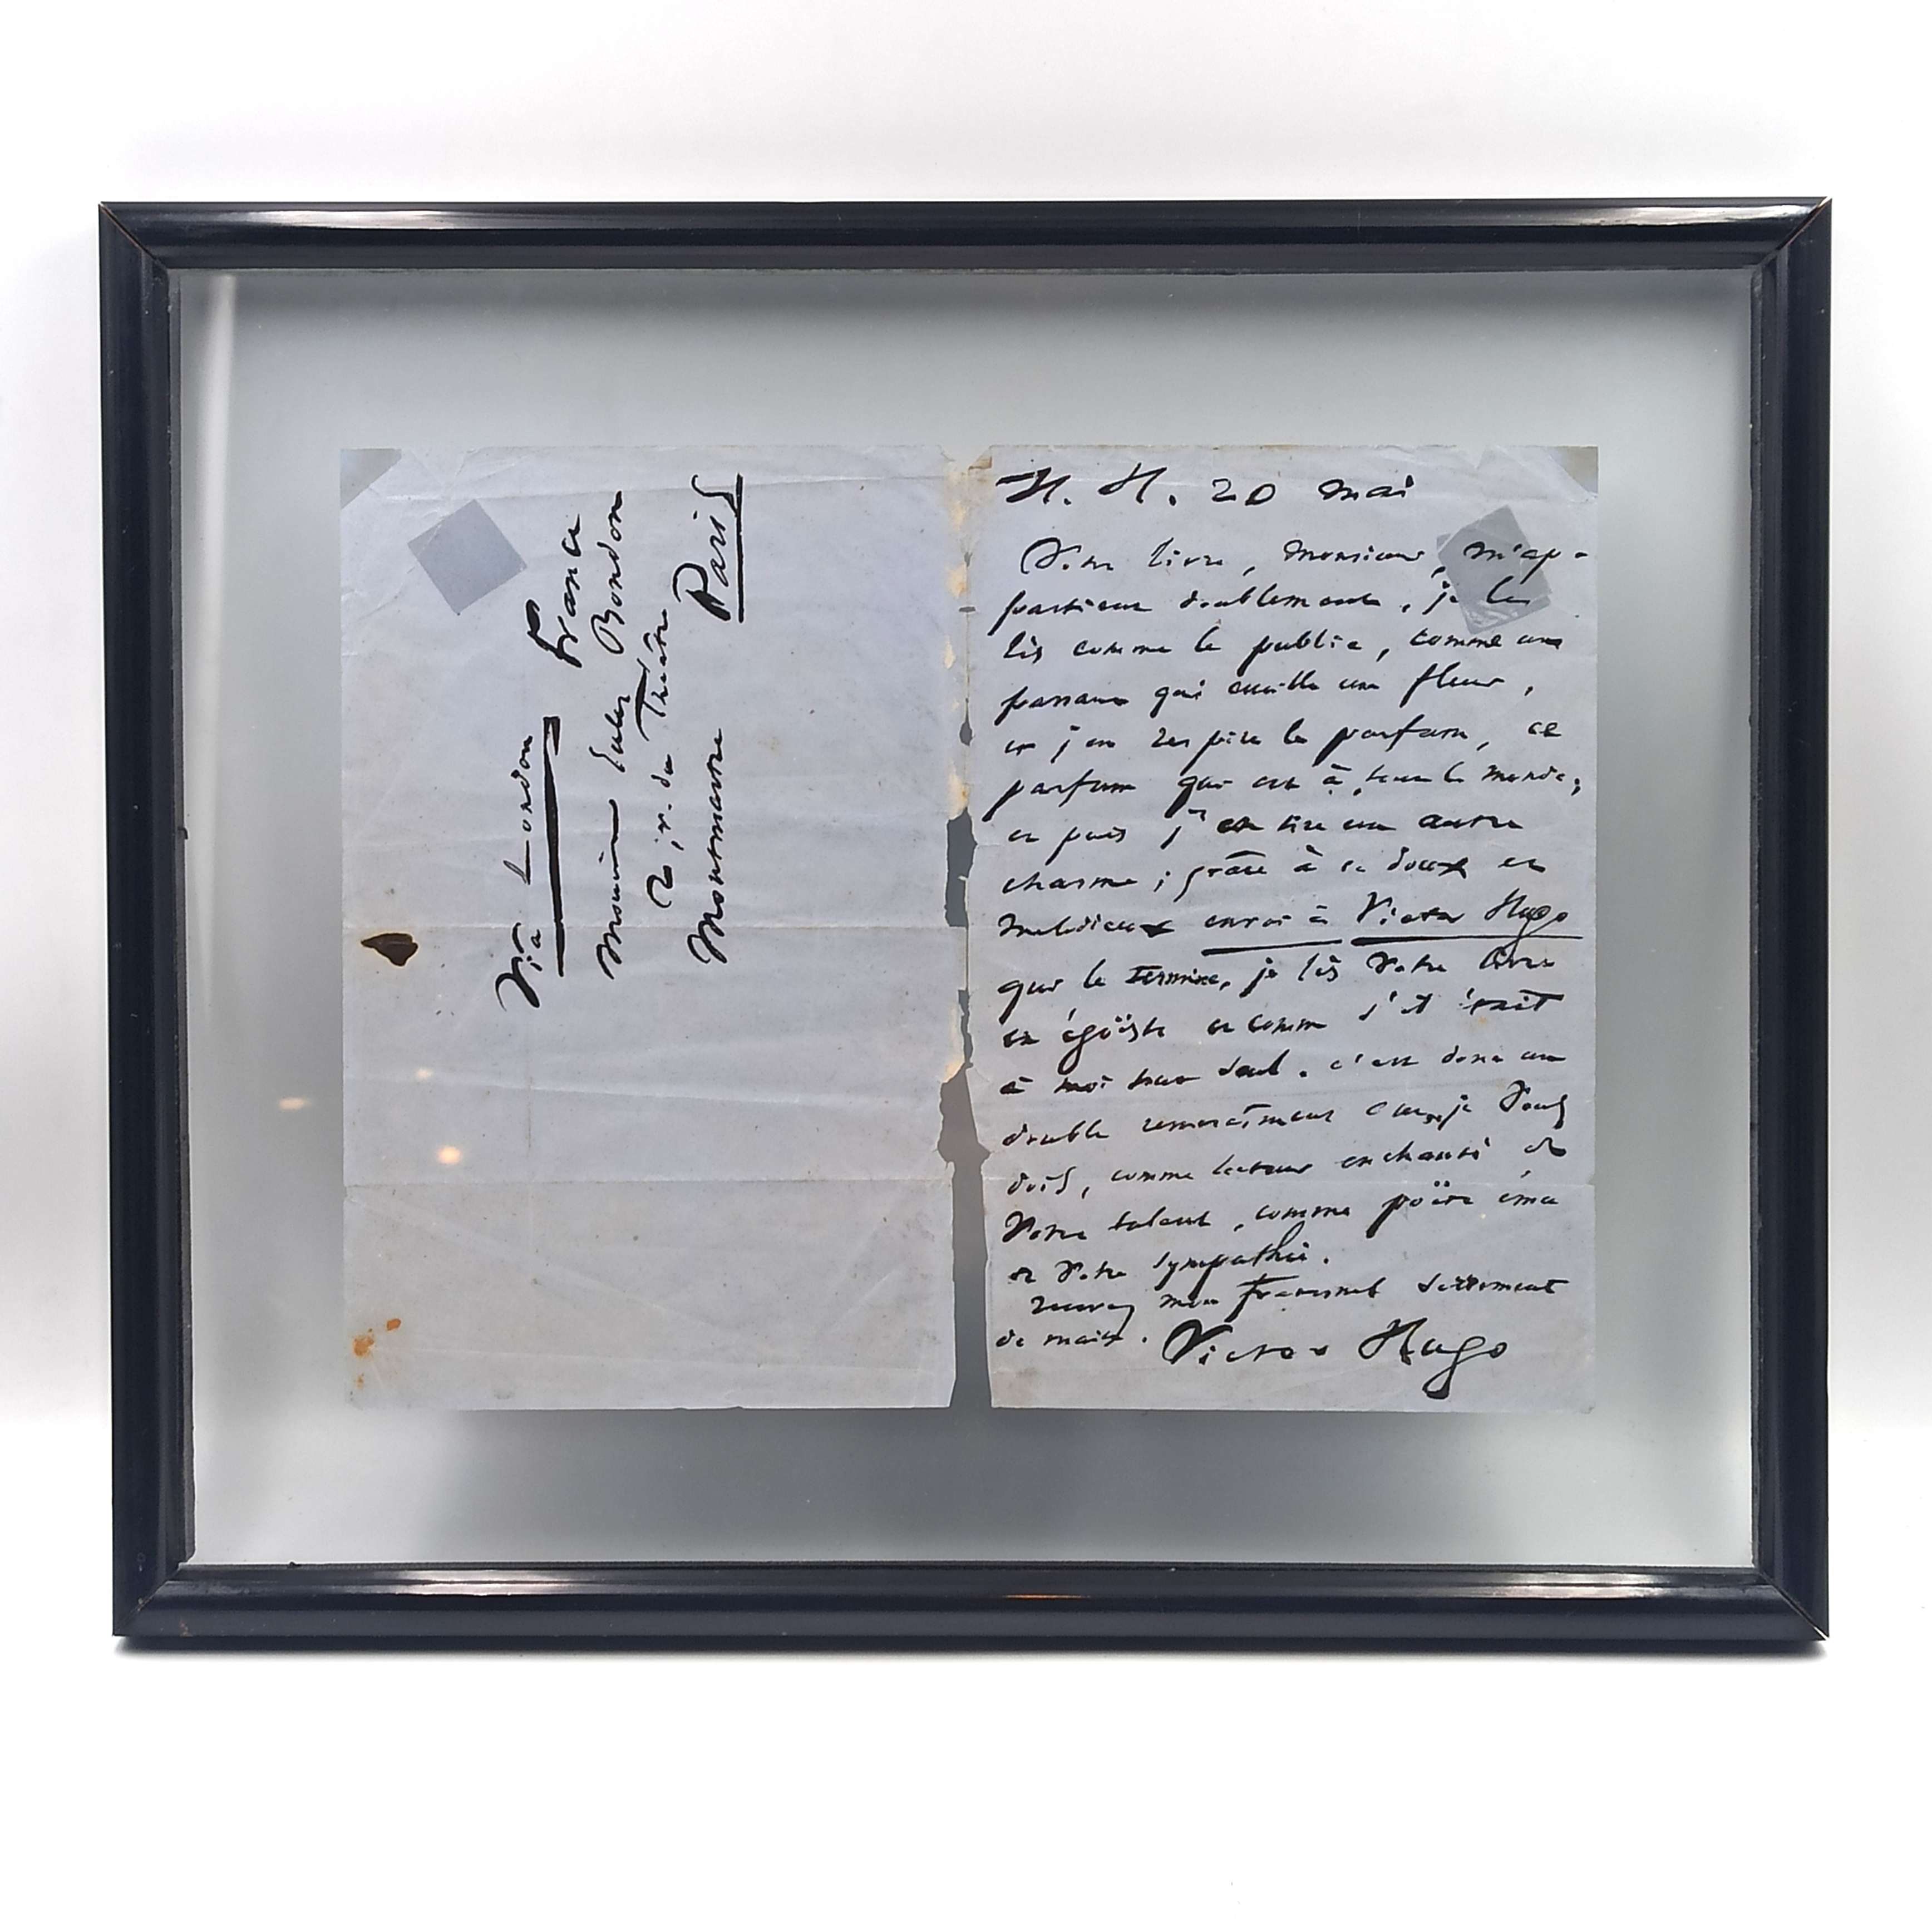 Via London
France
Monsieur Jules Bondon
2, r. du Théâtre
Montmartre Paris
H. H. 20 mai
Votre livre, Monsieur, m'ap-
partient doublement, je le
lis comme le public, comme un
passant qui cueille une fleur,
et j'en respire le parfum, ce
parfum qui est à tout le monde;
et puis j'en tire un autre
charme; grâce à ce doux et
mélodieux envoi à Victor Hugo
qui le termine, je lis votre livre
en égoïste et comme s'il était
à moi tout seul. c'est donc un
double remercîment que je vous
dois, comme lecteur enchanté de
votre talent, comme poëte ému
de votre sympathie.
recevez mon fraternel serrement
de main. Victor Hugo